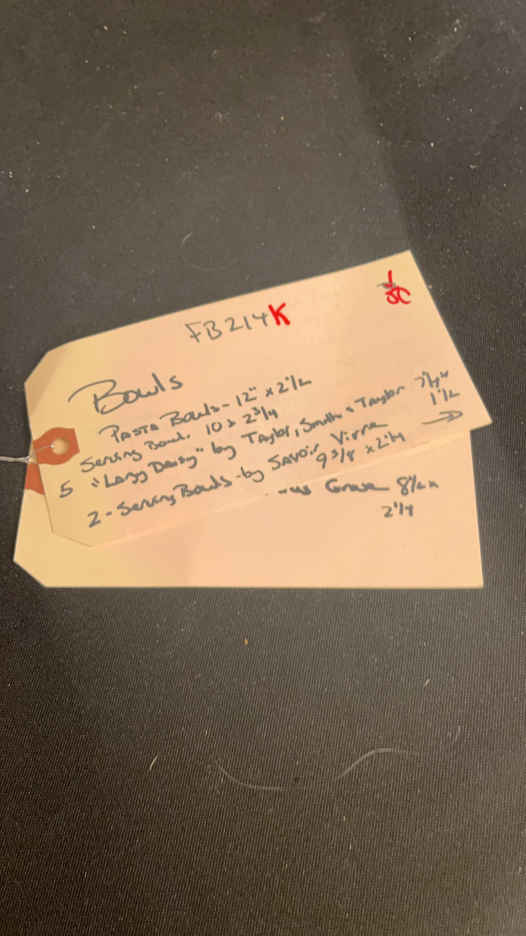 FB214K
Bowls
Pasta Bowls - 12" x 2 1/2
Serving Bowl. 10 x 2 3/4
5 "Lazy Daisy" by Taylor, Smith & Taylor
1 1/2
2 - Serving Bowls - by Savoir Vivre →
9 3/8 x 2 1/4
8 1/2 x
2 1/4